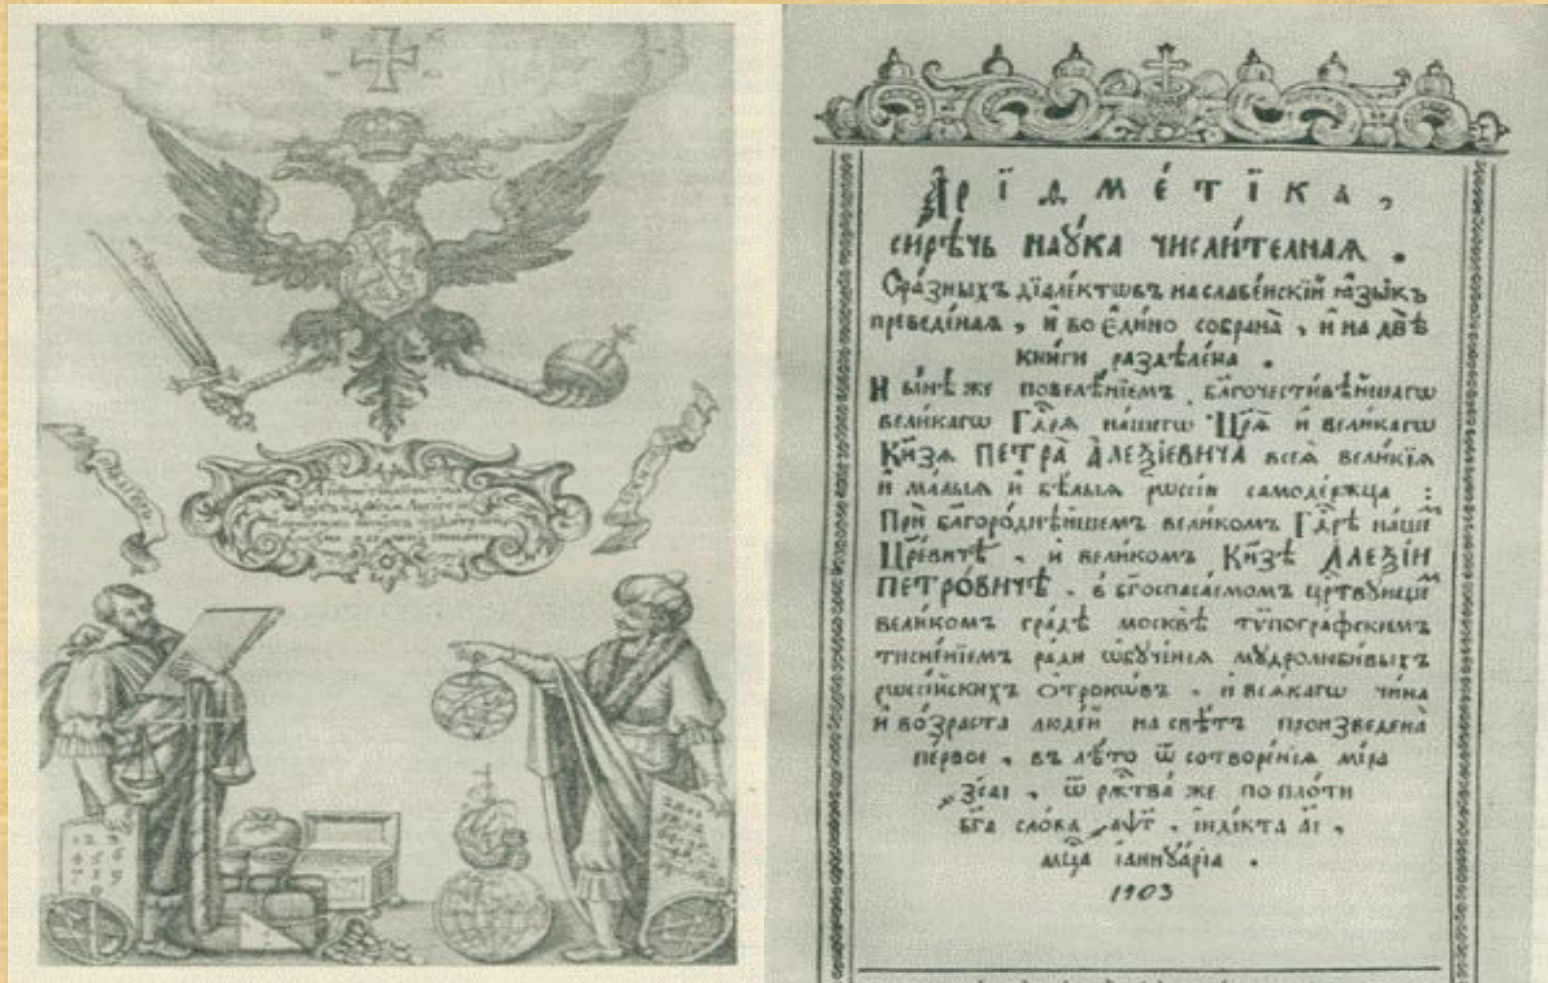 Аріѳме́тїка,
си́рѣчь наꙋ́ка числи́телнаѧ .
С̾ра́зныхъ дїале́ктѡвъ на славе́нскїй ꙗ҆зы́къ
преведе́наѧ , и҆ во є҆ди́но собрана̀ , и҆ на двѣ̀
кни́ги раздѣле́на .
Ны́нѣ же повелѣ́нїемъ бл҃гочести́вѣйшагѡ
вели́кагѡ Гдⷭ҇рѧ на́шегѡ Цр҃ѧ̀ и҆ вели́кагѡ
Кн҃зѧ ПЕТРА̀ А҆ЛЕѮІ́ЕВИЧА всеѧ̀ вели́кїѧ
и҆ ма́лыѧ и҆ бѣ́лыѧ рѡссі́и самоде́ржца :
Прѝ бл҃горо́днѣйшемъ вели́комъ Гдⷭ҇рѣ на́шеⷨ
Цр҃е́вичѣ , и҆ вели́комъ Кн҃зѣ А҆ЛЕѮІ́И
ПЕТРО́ВИЧѢ . в̾ бг҃оспаса́емомъ црⷭ҇твꙋ́ющеⷨ
вели́комъ гра́дѣ москвѣ̀ тѷпогра́фскимъ
тисне́нїемъ ра́ди ѡ҆бꙋче́нїѧ мꙋдролюби́выхъ
рѡссі́йскихъ ѻ҆́трокѡвъ , и҆ всѧ́кагѡ чи́на
и҆ во́зраста люде́й на свѣ́тъ произведена̀
пе́рвое , въ лѣ́то ѿ сотворе́нїѧ мі́ра
҂зсаі , ѿ ржⷭ҇тва́ же по пло́ти
бг҃а сло́ва ҂аѱг҃ , і҆нді́кта а҃і ,
мцⷭ҇а і҆аннꙋа́рїа .
1703